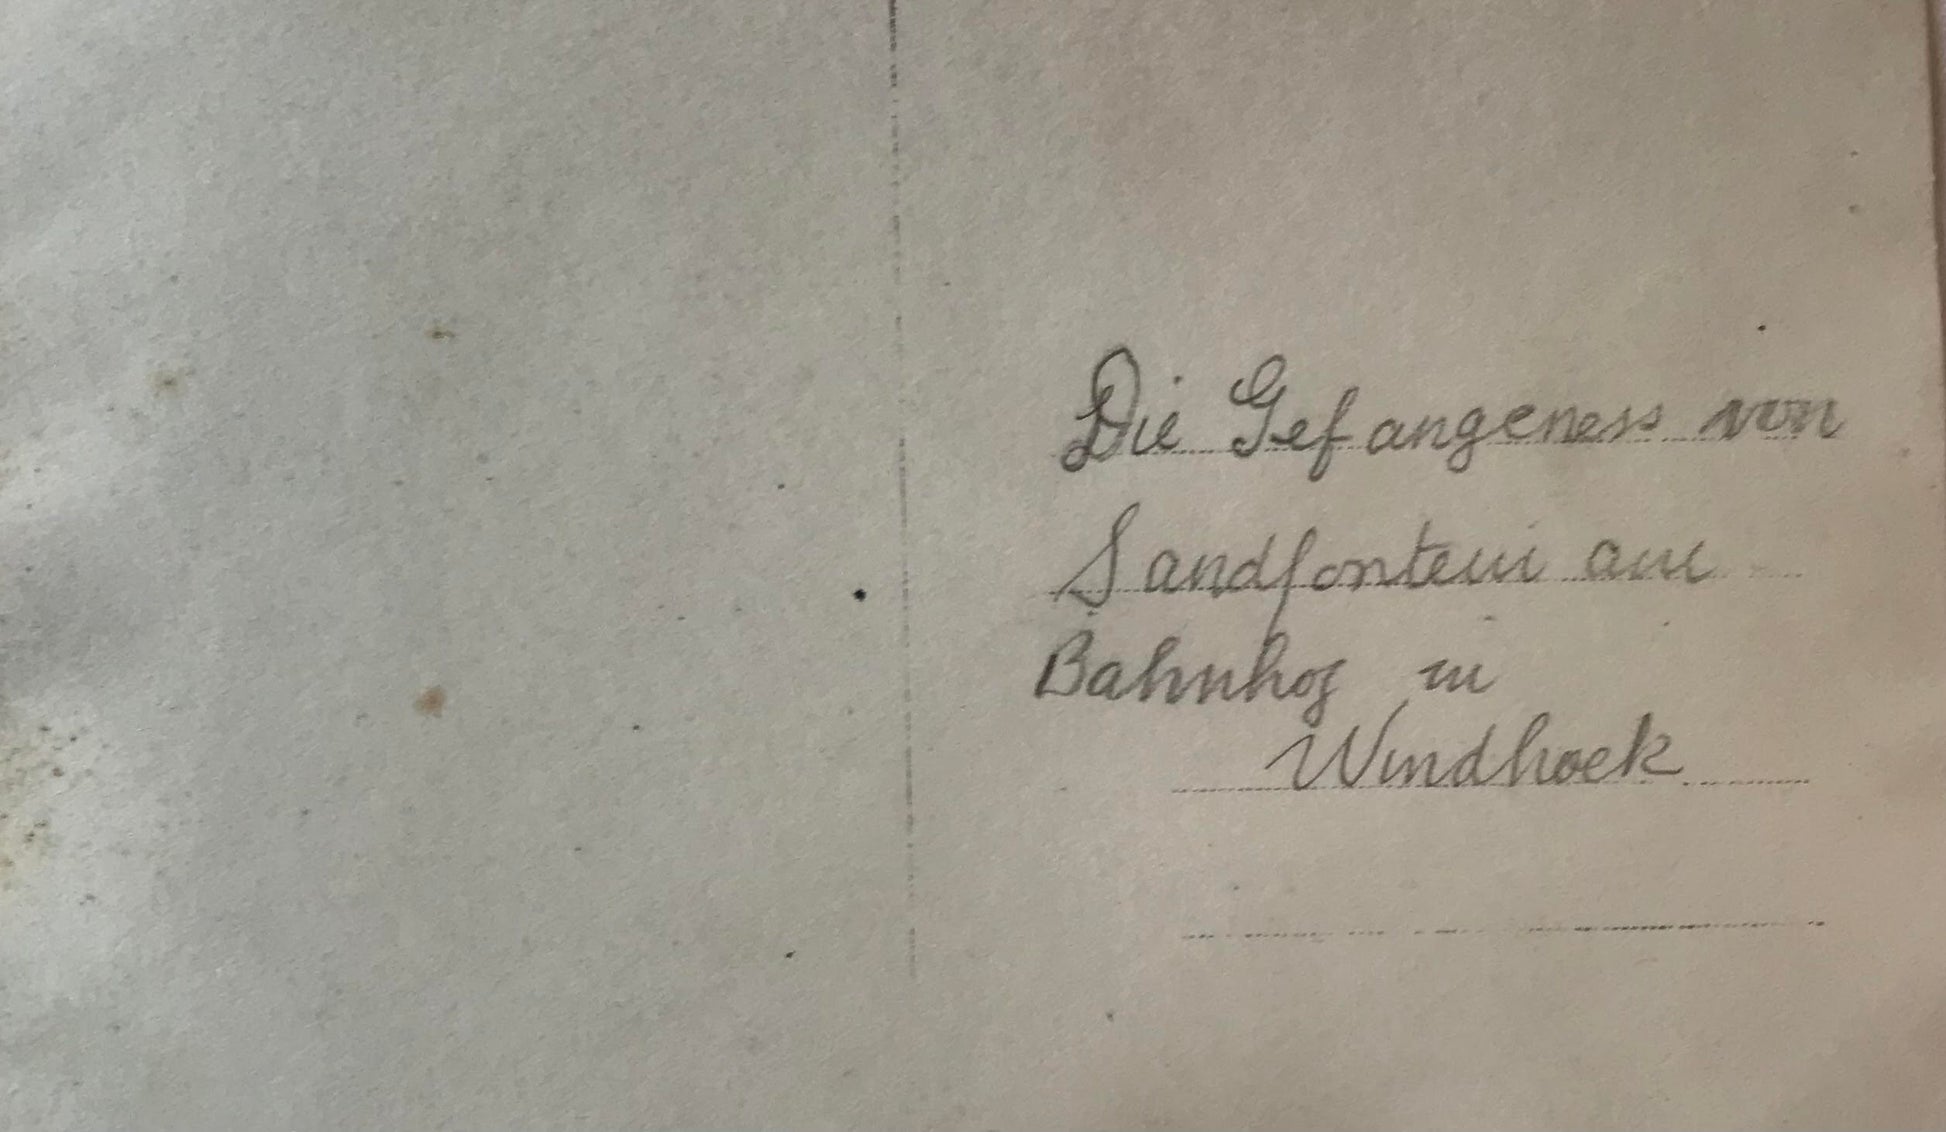 Die Gefangeness von
Sandfontein am
Bahnhof in
Windhoek